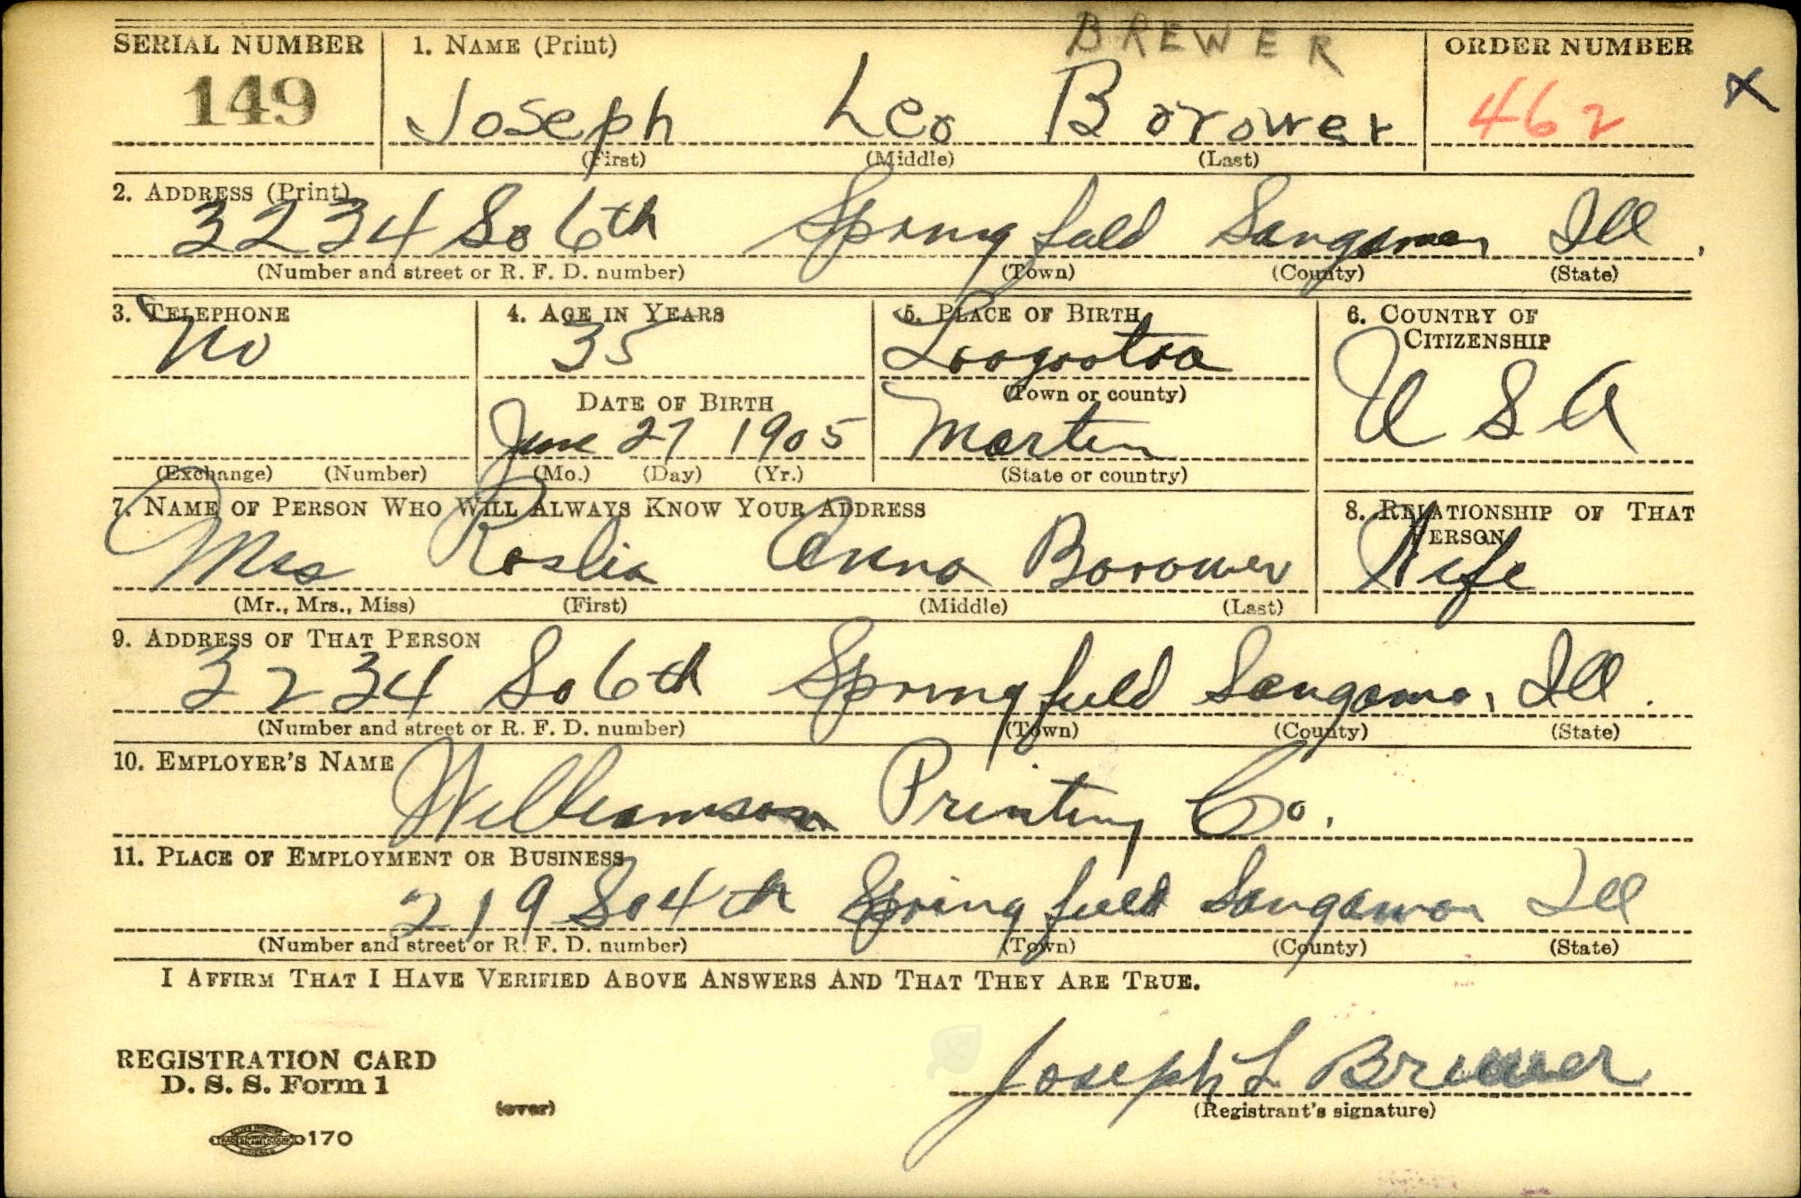 BREWER
SERIAL NUMBER 1. NAME (Print) ORDER NUMBER
149 Joseph Leo Borower 462 X
(First) (Middle) (Last)
2. ADDRESS (Print)
3234 So 6th Springfield Sangamon Ill.
(Number and street or R. F. D. number) (Town) (County) (State)
3. TELEPHONE 4. AGE IN YEARS 5. PLACE OF BIRTH 6. COUNTRY OF CITIZENSHIP
No 35 Loogootoa U S A
(Town or county)
DATE OF BIRTH
June 27 1905 Martin
(Exchange) (Number) (Mo.) (Day) (Yr.) (State or country)
7. NAME OF PERSON WHO WILL ALWAYS KNOW YOUR ADDRESS 8. RELATIONSHIP OF THAT PERSON
Mrs Roslia Anna Borower Wife
(Mr., Mrs., Miss) (First) (Middle) (Last)
9. ADDRESS OF THAT PERSON
3234 So 6th Springfield Sangamo, Ill.
(Number and street or R. F. D. number) (Town) (County) (State)
10. EMPLOYER'S NAME
Williamson Printing Co.
11. PLACE OF EMPLOYMENT OR BUSINESS
219 So 4th Springfield Sangamon Ill
(Number and street or R. F. D. number) (Town) (County) (State)
I AFFIRM THAT I HAVE VERIFIED ABOVE ANSWERS AND THAT THEY ARE TRUE.
REGISTRATION CARD
D. S. S. Form 1
Joseph L Brewer
(over) (Registrant's signature)
170